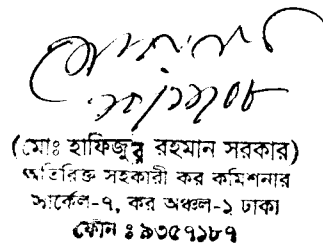 (মোঃ হাফিজুর রহমান সরকার)
অতিরিক্ত সহকারী কর কমিশনার
সার্কেল-৭, কর অঞ্চল-১ ঢাকা
ফোন ঃ ৯৩৫৭১৮৭